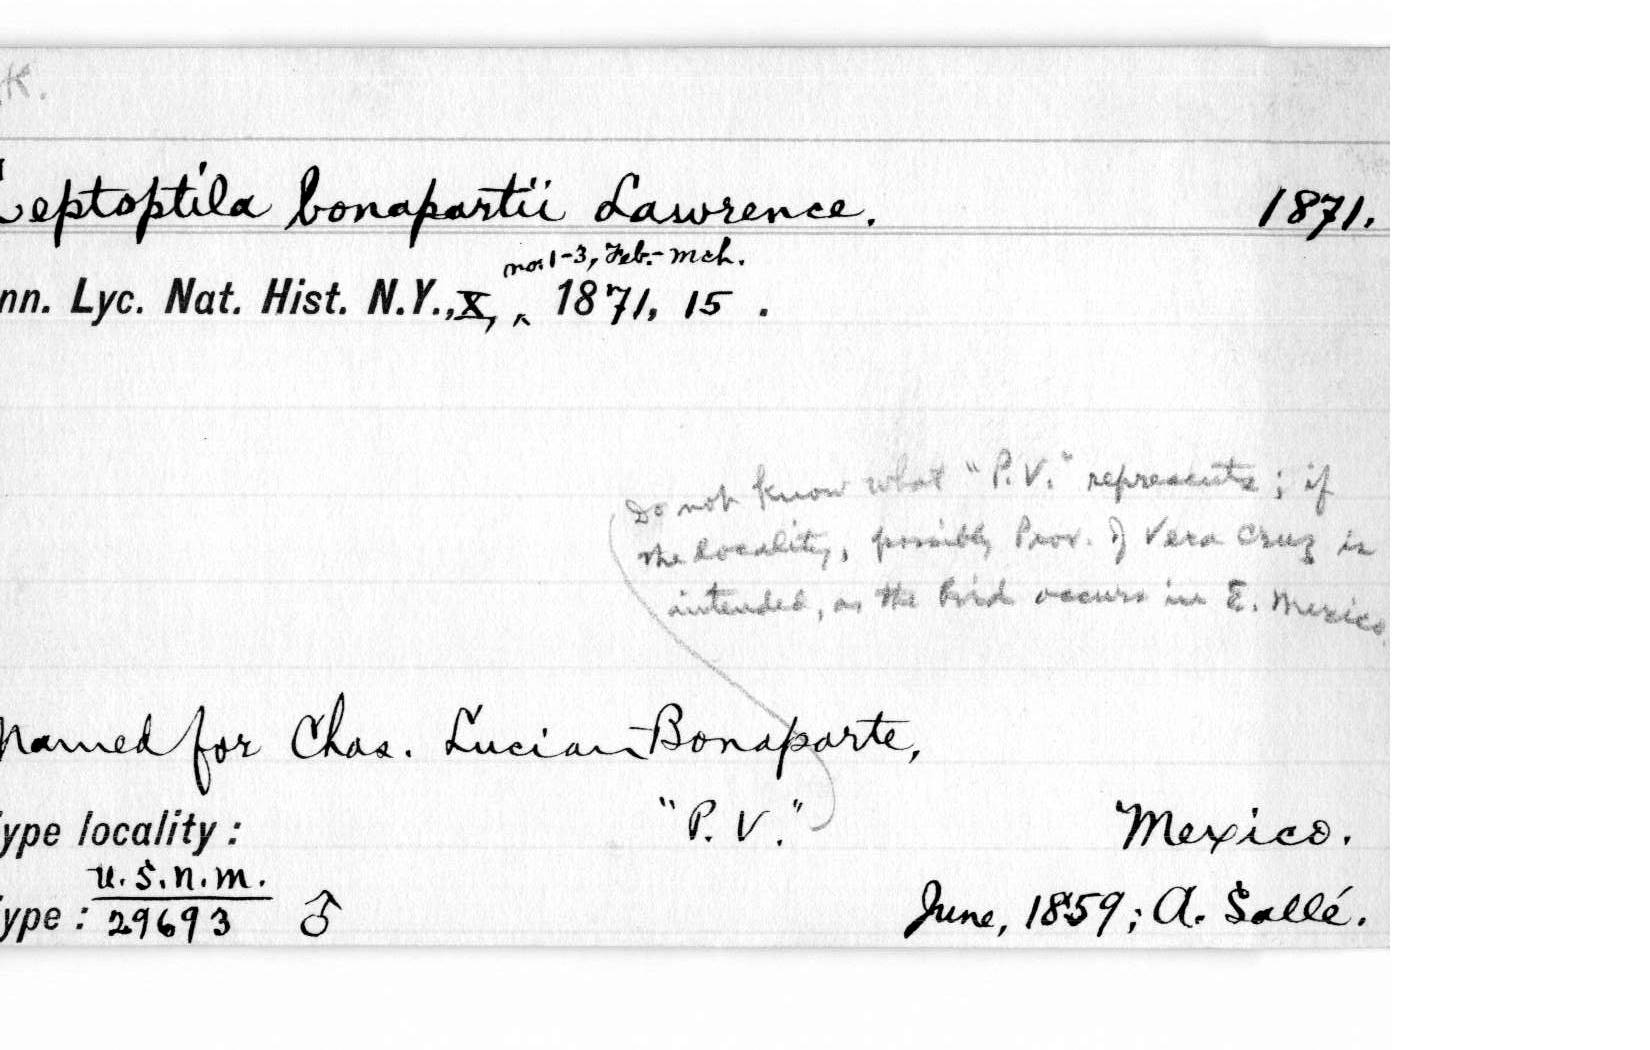 K.
Leptoptila bonapartii Lawrence. 1871.
nos 1-3, Feb.-Mch.
nn. Lyc. Nat. Hist. N.Y., X, ‸ 1871, 15 .
Do not know what "P.V." represents; if
the locality, possibly Prov. of Vera Cruz is
intended, as the bird occurs in E. Mexico.
Named for Chas. Lucian Bonaparte,
ype locality : "P. V." Mexico.
U.S.N.M.
ype : 29693 ♂ June, 1859; A. Sallé.